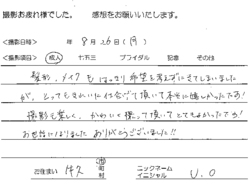 撮影お疲れ様でした。 感想をお願いいたします。
<撮影日時> 年 8月26日(月)
<撮影項目> 成人 七五三 ブライダル 記念 その他
髪形、メイクもはっきり希望を考えずにきてしまいました
が、とってもきれいに仕上げて頂いて本当に嬉しかったです!
撮影も楽しく、かわいく撮って頂いてとてもよかったです!
お世話になりました ありがとうございました!!
お住まい 市 町 村 ニックネーム イニシャル U.O